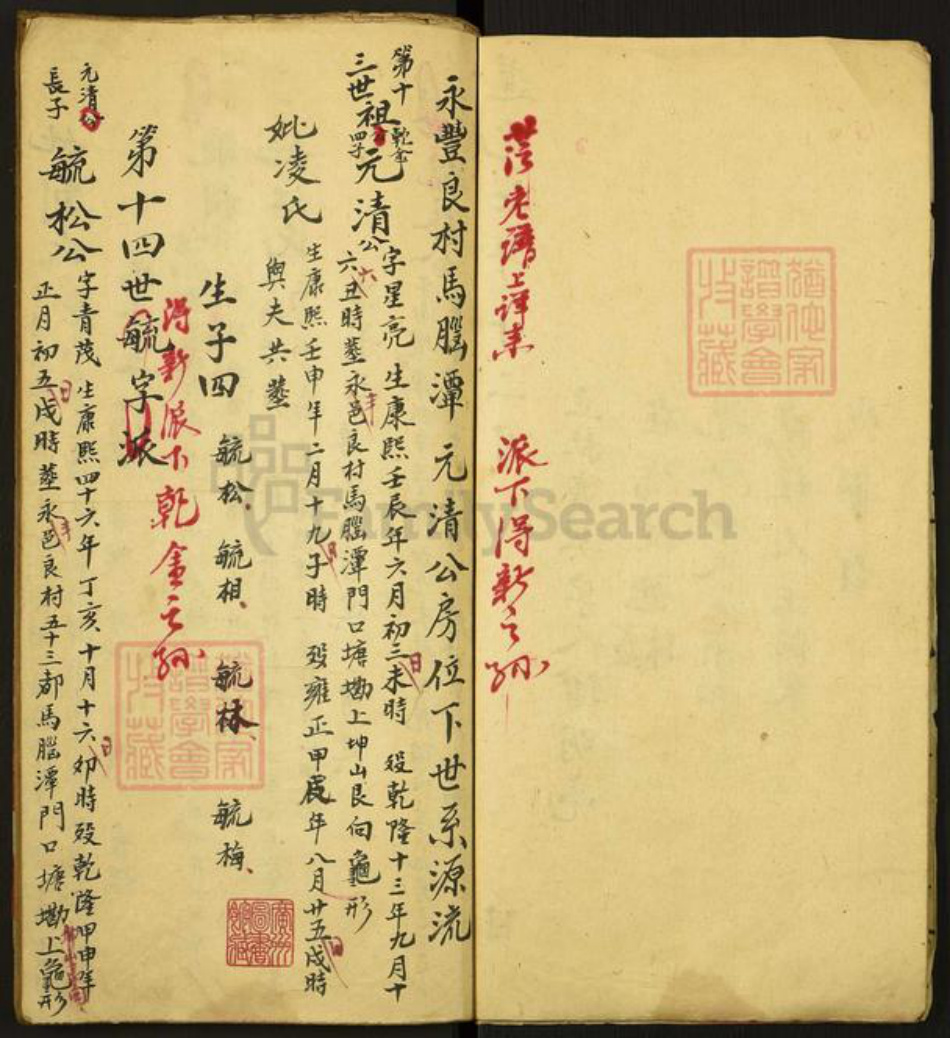 派下得新之孫
永豐良村馬腦潭 元清公房位下世系源流
第十三世祖
乾金四子
元清公
字星亮 生康熙壬辰年六月初三日未時 殁乾隆十三年九月十
六丑時塟永邑良村馬腦潭門口塘墈上坤山艮向龜形
妣凌氏
生康熙壬申年二月十九日子時 殁雍正甲辰年八月廿五日戌時
與夫共塟
生子四
毓松、毓相、毓林、毓梅、
第十四世毓字派
得新派下乾金之孫
元清公
長子
毓松公
字青茂 生康熙四十六年丁亥十月十六日卯時殁乾隆甲申年
正月初五日戌時塟永邑良村五十三都馬腦潭門口塘墈上龜形
FamilySearch